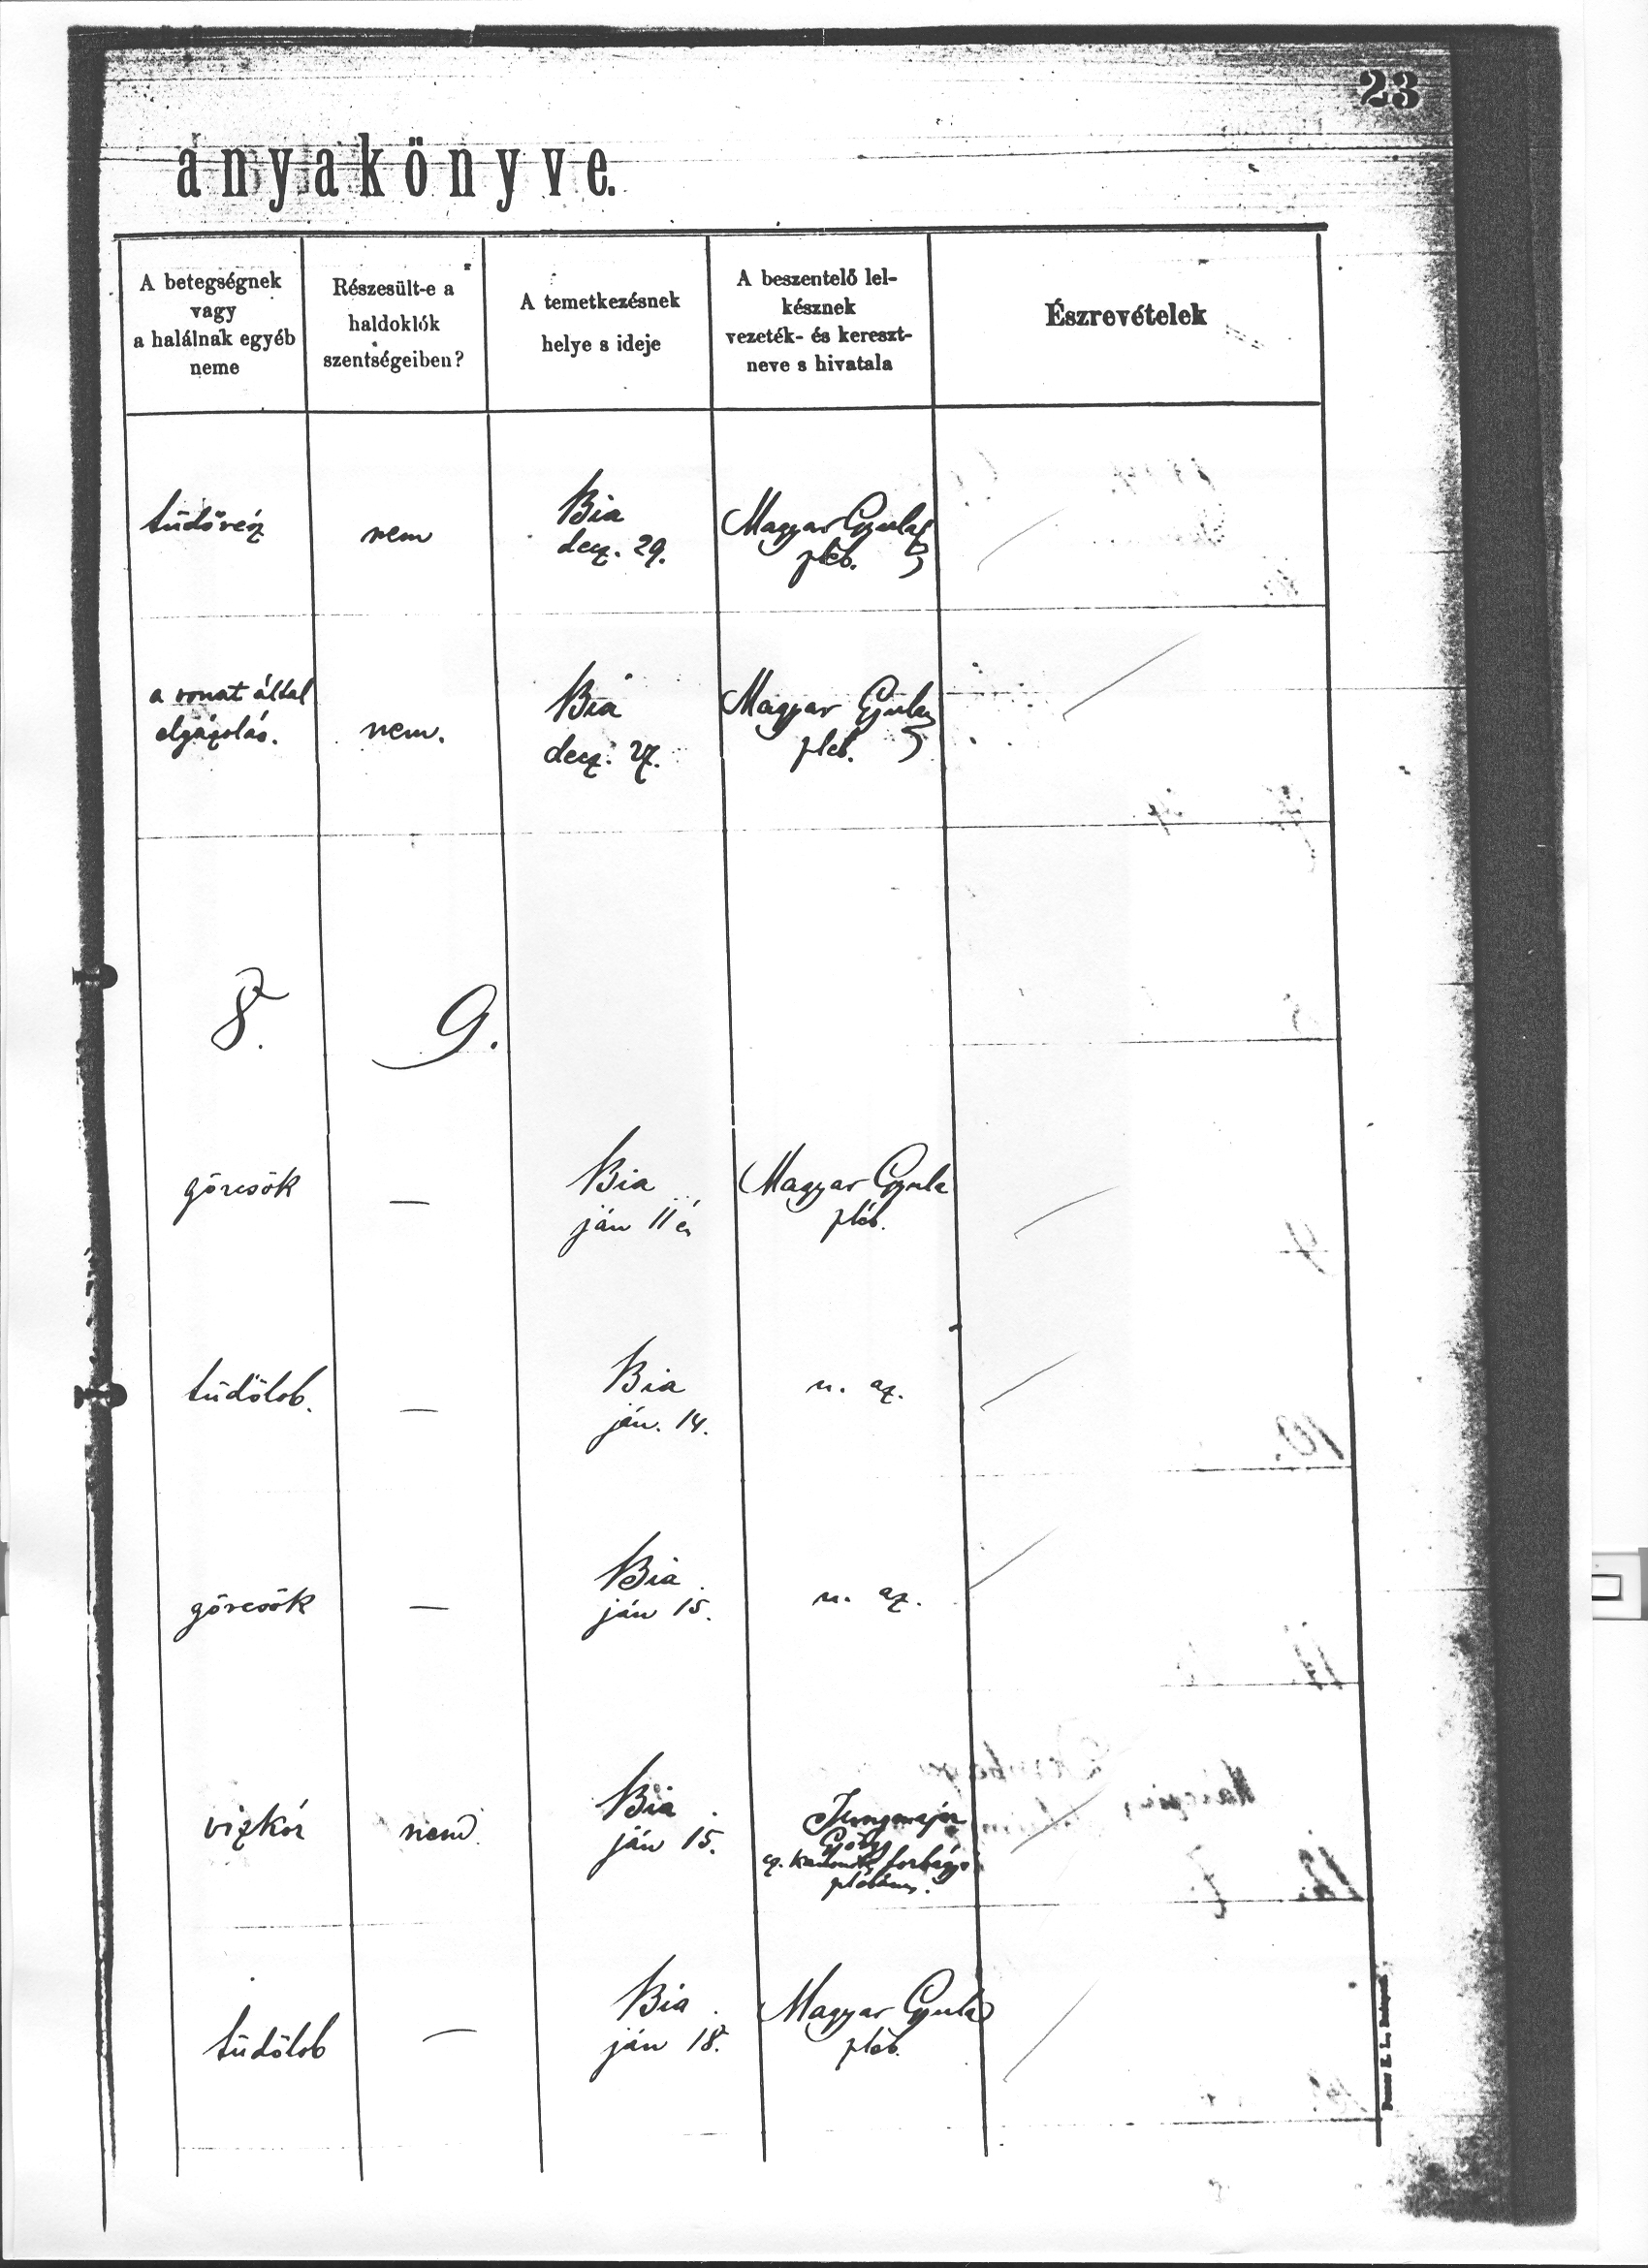 23
anyakönyve.
A betegségnek
vagy
a halálnak egyéb
neme
Részesült-e a
haldoklók
szentségeiben?
A temetkezésnek
helye s ideje
A beszentelő lel-
késznek
vezeték- és kereszt-
neve s hivatala
Észrevételek
tüdővész
nem
Bia
decz. 29.
Magyar Gyula
pléb.
a vonat által
elgázolás.
nem.
Bia
decz. 27.
Magyar Gyula
pléb.
8.
9.
görcsök
—
Bia
ján 11
Magyar Gyula
pléb.
tüdőlob.
—
Bia
ján. 14.
u. az.
görcsök
—
Bia
ján 15.
u. az.
vizkór
nem
Bia
ján 15.
Jungmajer
plébános.
tüdőlob
—
Bia
ján 18.
Magyar Gyula
pléb.